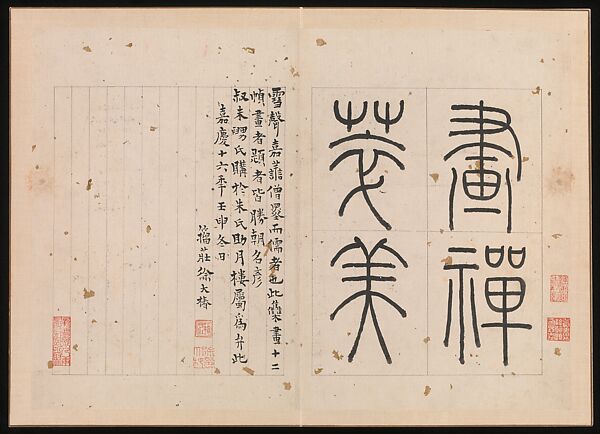 畫禪
萃美
雪聲嘉僧墨而儒者也此集畫十二
幀畫者題者皆勝朝名彥
叔未舅氏購於朱氏月樓屬為弁此
嘉慶十六年壬申冬日
籀莊徐大椿